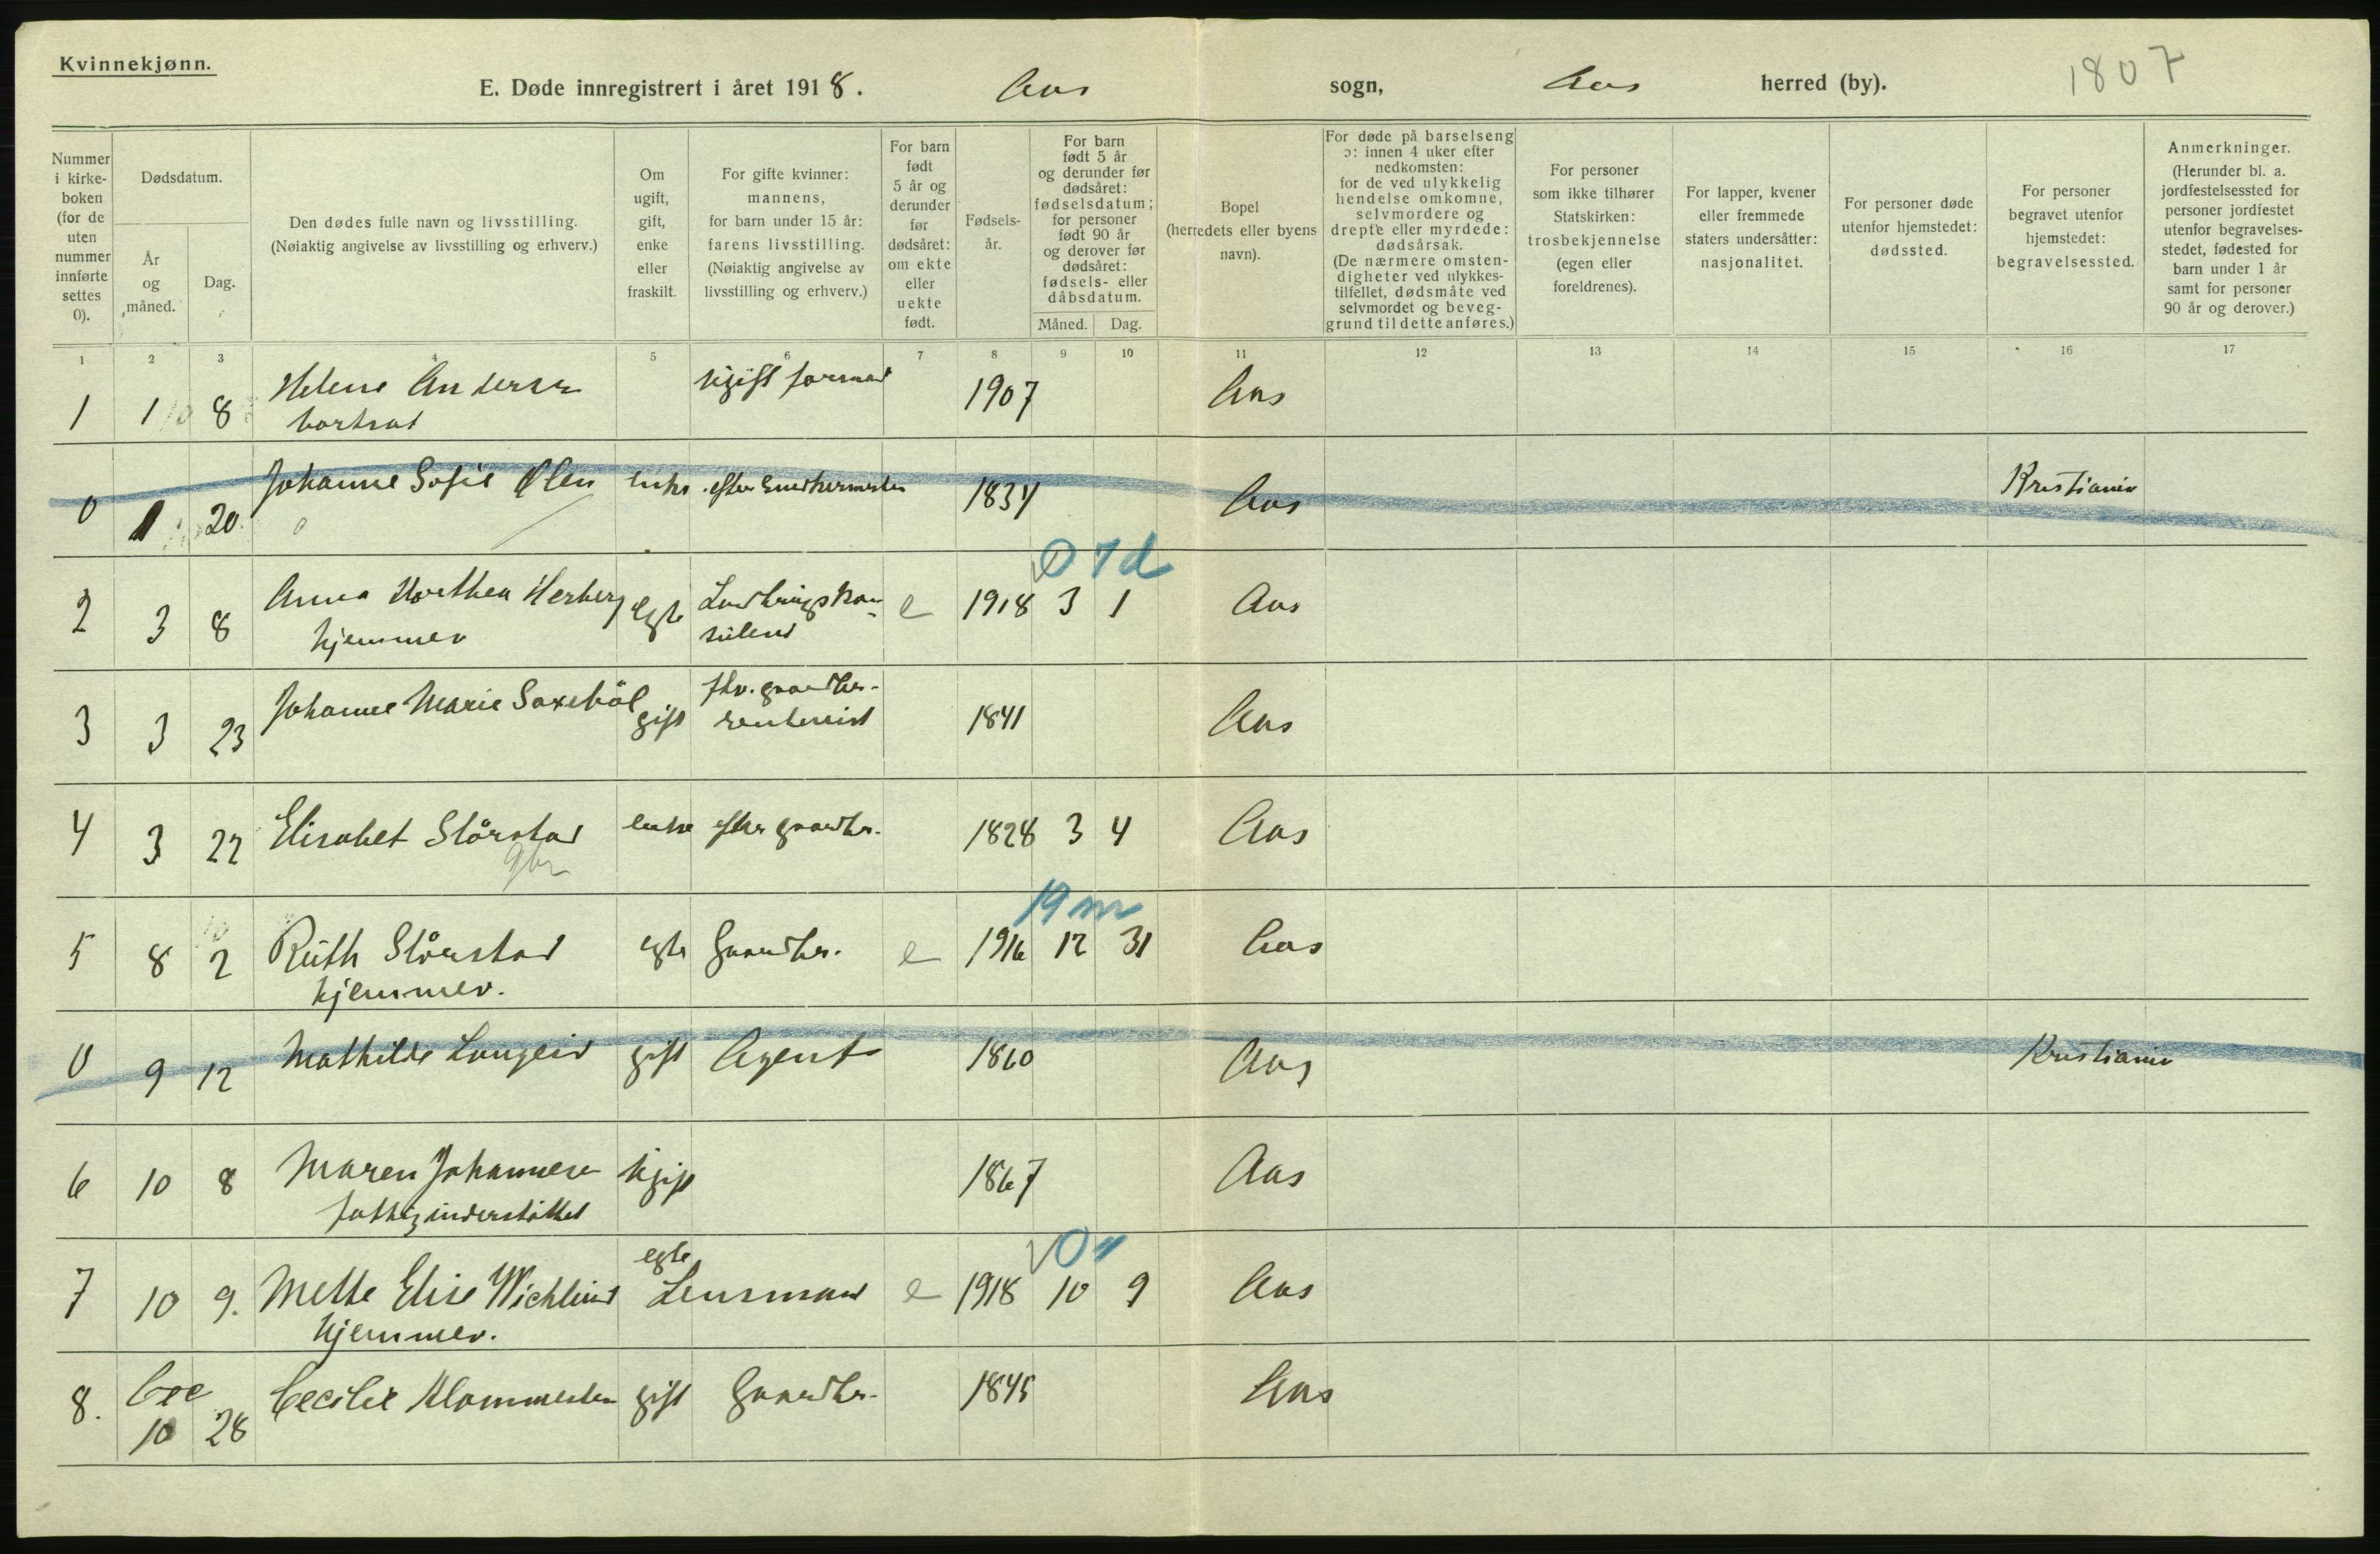 Kvinnekjønn.
E. Døde innregistrert i året 1918. Aas sogn, Aas herred (by). 1807
Nummer i kirke-boken (for de uten nummer innførte settes 0).
Dødsdatum.
År og måned.
Dag.
Den dødes fulle navn og livsstilling.
(Nøiaktig angivelse av livsstilling og erhverv.)
Om ugift, gift, enke eller fraskilt.
For gifte kvinner: mannens, for barn under 15 år: farens livsstilling. (Nøiaktig angivelse av livsstilling og erhverv.)
For barn født 5 år og derunder før dødsåret: om ekte eller uekte født.
Fødsels-år.
For barn født 5 år og derunder før dødsåret: fødselsdatum; for personer født 90 år og derover før dødsåret: fødsels- eller dåbsdatum.
Måned. Dag.
Bopel (herredets eller byens navn).
For døde på barselseng ɔ: innen 4 uker efter nedkomsten: for de ved ulykkelig hendelse omkomne, selvmordere og drepte eller myrdede: dødsårsak. (De nærmere omsten-digheter ved ulykkes-tilfellet, dødsmåte ved selvmordet og beveg-grund til dette anføres.)
For personer som ikke tilhører Statskirken: trosbekjennelse (egen eller foreldrenes).
For lapper, kvener eller fremmede staters undersåtter: nasjonalitet.
For personer døde utenfor hjemstedet: dødssted.
For personer begravet utenfor hjemstedet: begravelsessted.
Anmerkninger. (Herunder bl. a. jordfestelsessted for personer jordfestet utenfor begravelses-stedet, fødested for barn under 1 år samt for personer 90 år og derover.)
1 2 3 4 5 6 7 8 9 10 11 12 13 14 15 16 17
1 1 8 Helene Andersen ugift formand 1907 Aas
bortsat
0 1 20 Johanne Sofie Olsen enke efter snedkermester 1834 Aas Kristiania
0 7 d
2 3 8 Anna Dorthea Herberg egte Landbrugskon- e 1918 3 1 Aas
hjemmev sulent
3 3 23 Johanne Marie Saxebøl gift fhv. gaardbr. 1841 Aas
rentenist
4 3 22 Elisabet Stårstad enke efter gaardbr. 1828 3 4 Aas
gbr
19 m
5 8 2 Ruth Stårstad egte Gaardbr. e 1916 12 31 Aas
hjemmev.
0 9 12 Mathilde Langeid gift Agent 1860 Aas Kristiania
6 10 8 Maren Johannesen ugift 1867 Aas
fattigunderstøttet
egte 0
7 10 9. Mette Elise Wichlund Lensmand e 1918 10 9 Aas
hjemmev.
8. 10 28 Cecilie Klommesten gift Gaardbr. 1845 Aas